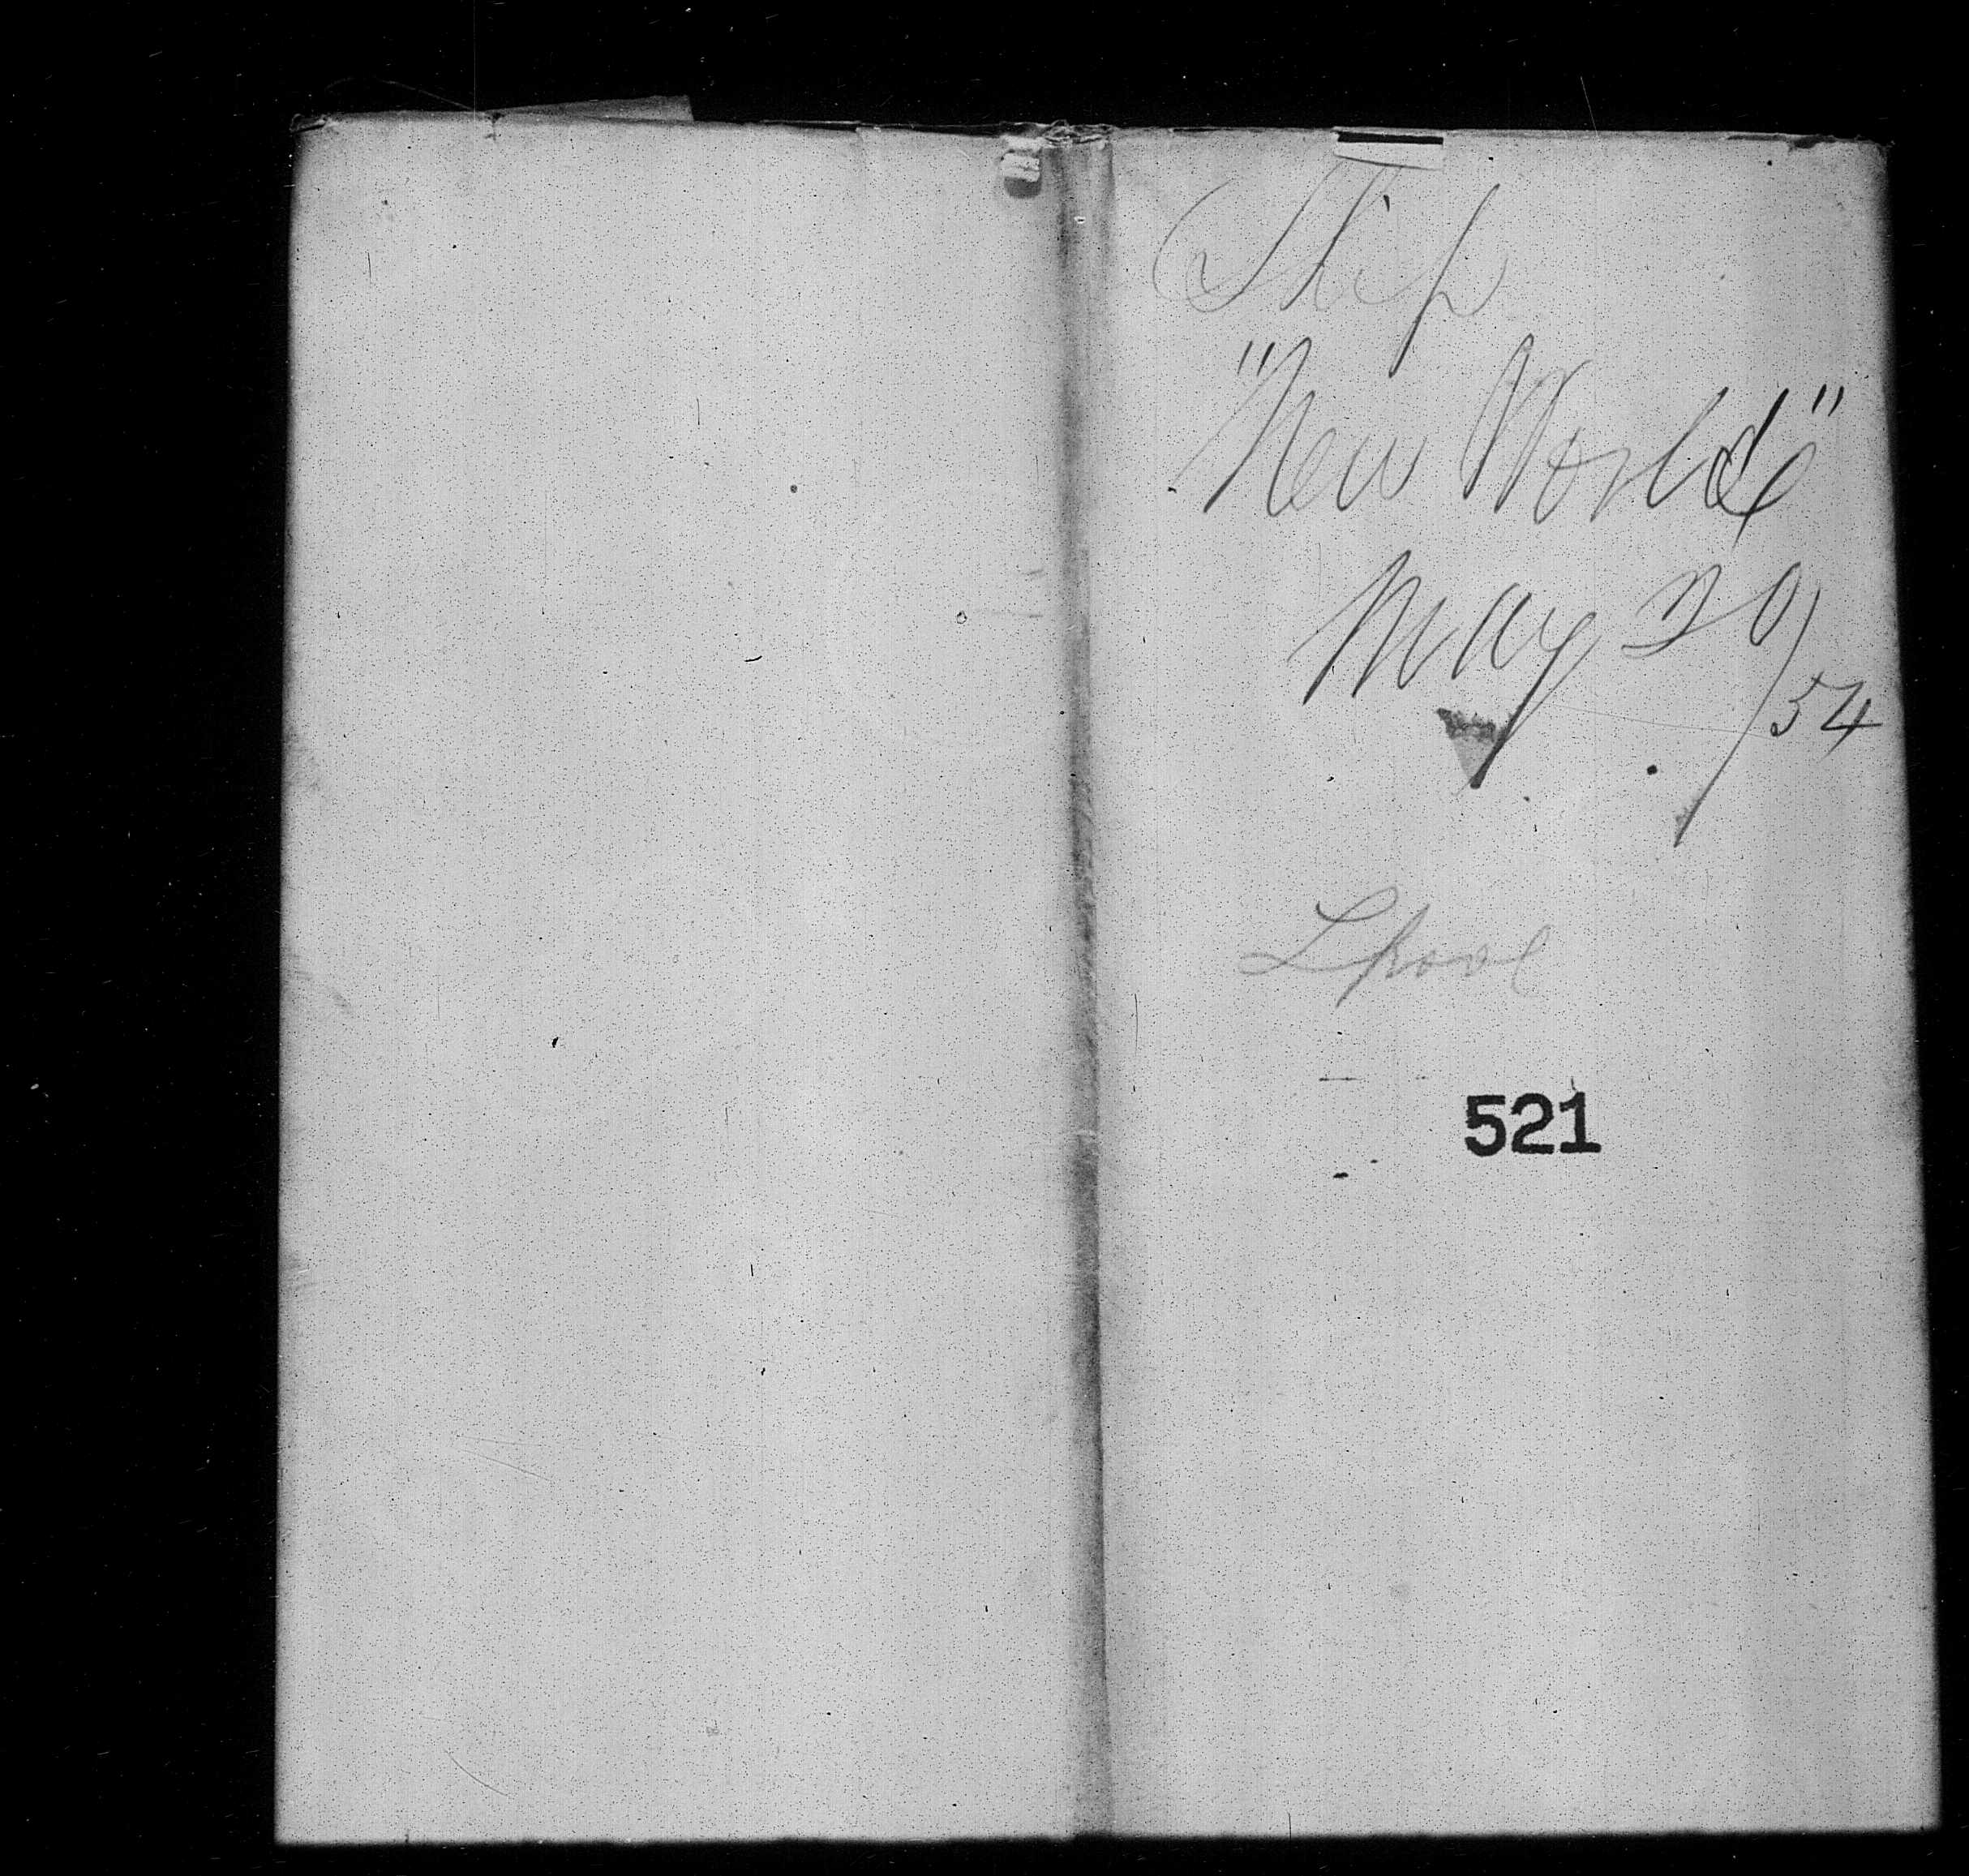 Ship
"New World"
May 20/54
Lpool
521